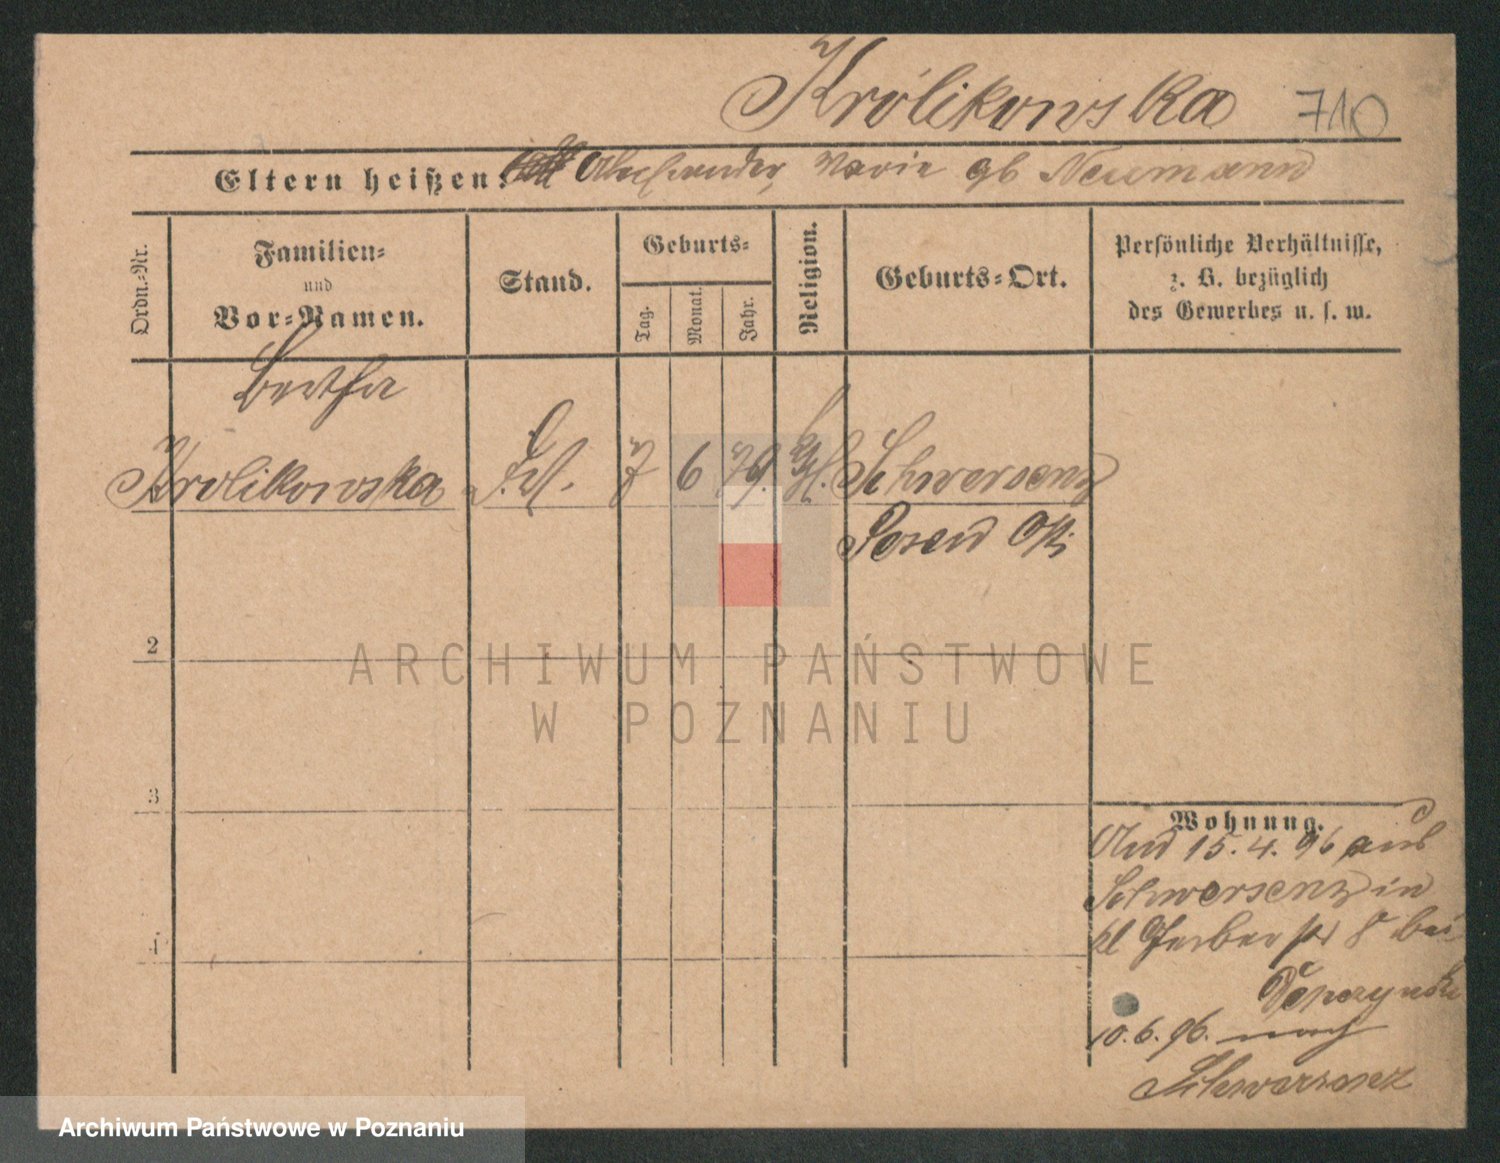 Królikowska 710
Eltern heißen: Alexander, Marie gb Neumann
Ordn.-Nr.
Familien-
und
Vor-Namen.
Stand.
Geburts-
Tag.
Monat.
Jahr.
Religion.
Geburts-Ort.
Persönliche Verhältnisse,
z. B. bezüglich
des Gewerbes u. s. w.
Bertha
Krolikowska 7 6 79. Schwersenz
Posen Ost
2
3
4
Wohnung.
15. 4. 96 aus
Schwersenz in
kl Gerber str 8 bei
10. 6. 96. nach
Schwersenz
ARCHIWUM PAŃSTWOWE
W POZNANIU
Archiwum Państwowe w Poznaniu